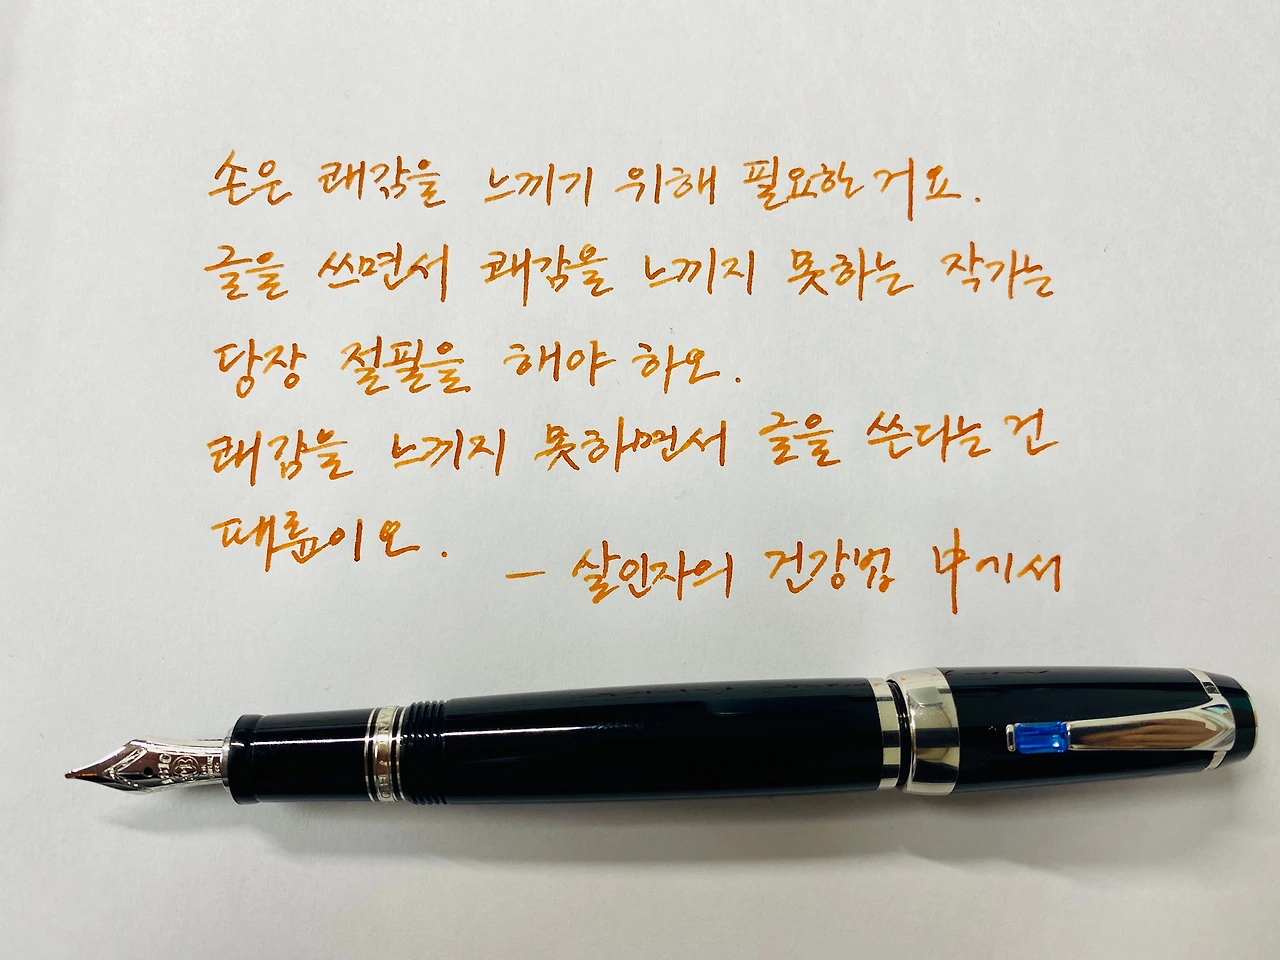 손은 쾌감을 느끼기 위해 필요한 거요.
글을 쓰면서 쾌감을 느끼지 못하는 작가는
당장 절필을 해야 하오.
쾌감을 느끼지 못하면서 글을 쓴다는 건
패륜이오.
- 살인자의 건강법 中에서